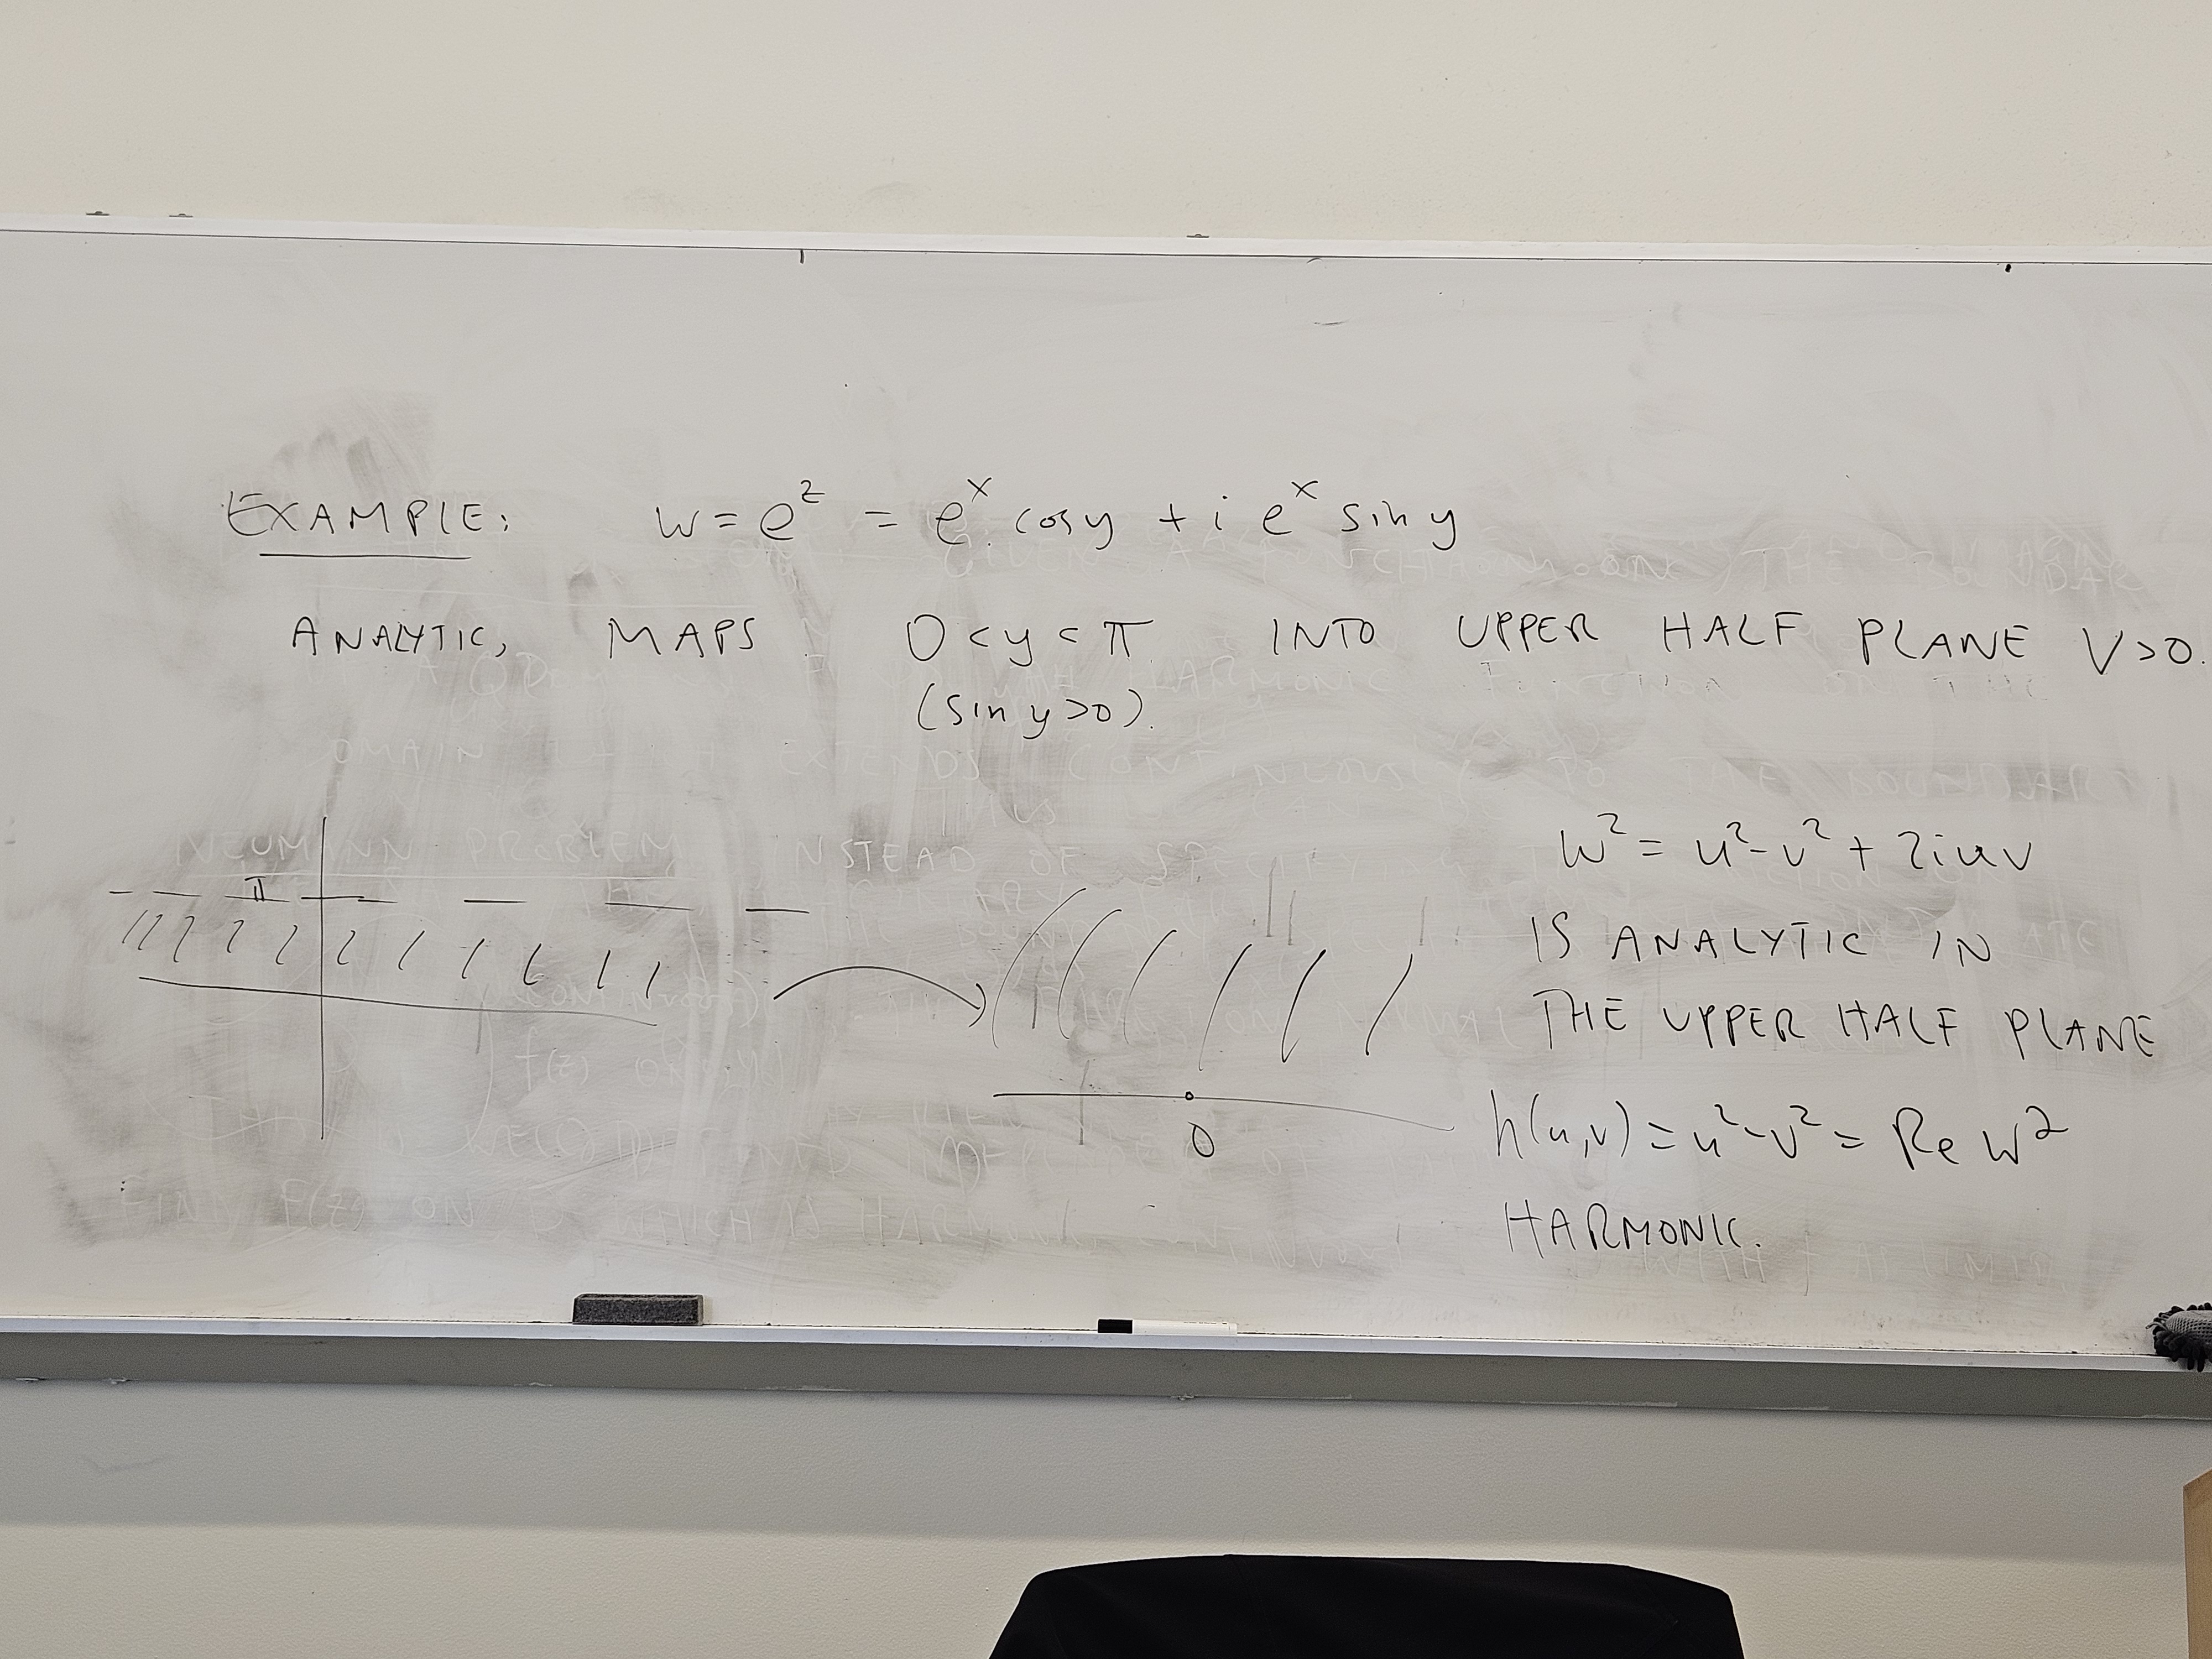 EXAMPLE: w = e^z = e^x cos y + i e^x sin y
ANALYTIC, MAPS 0 < y < π INTO UPPER HALF PLANE V > 0.
(sin y > 0).
π
0
w² = u² - v² + 2iuv
IS ANALYTIC IN
THE UPPER HALF PLANE
h(u,v) = u² - v² = Re w²
HARMONIC.